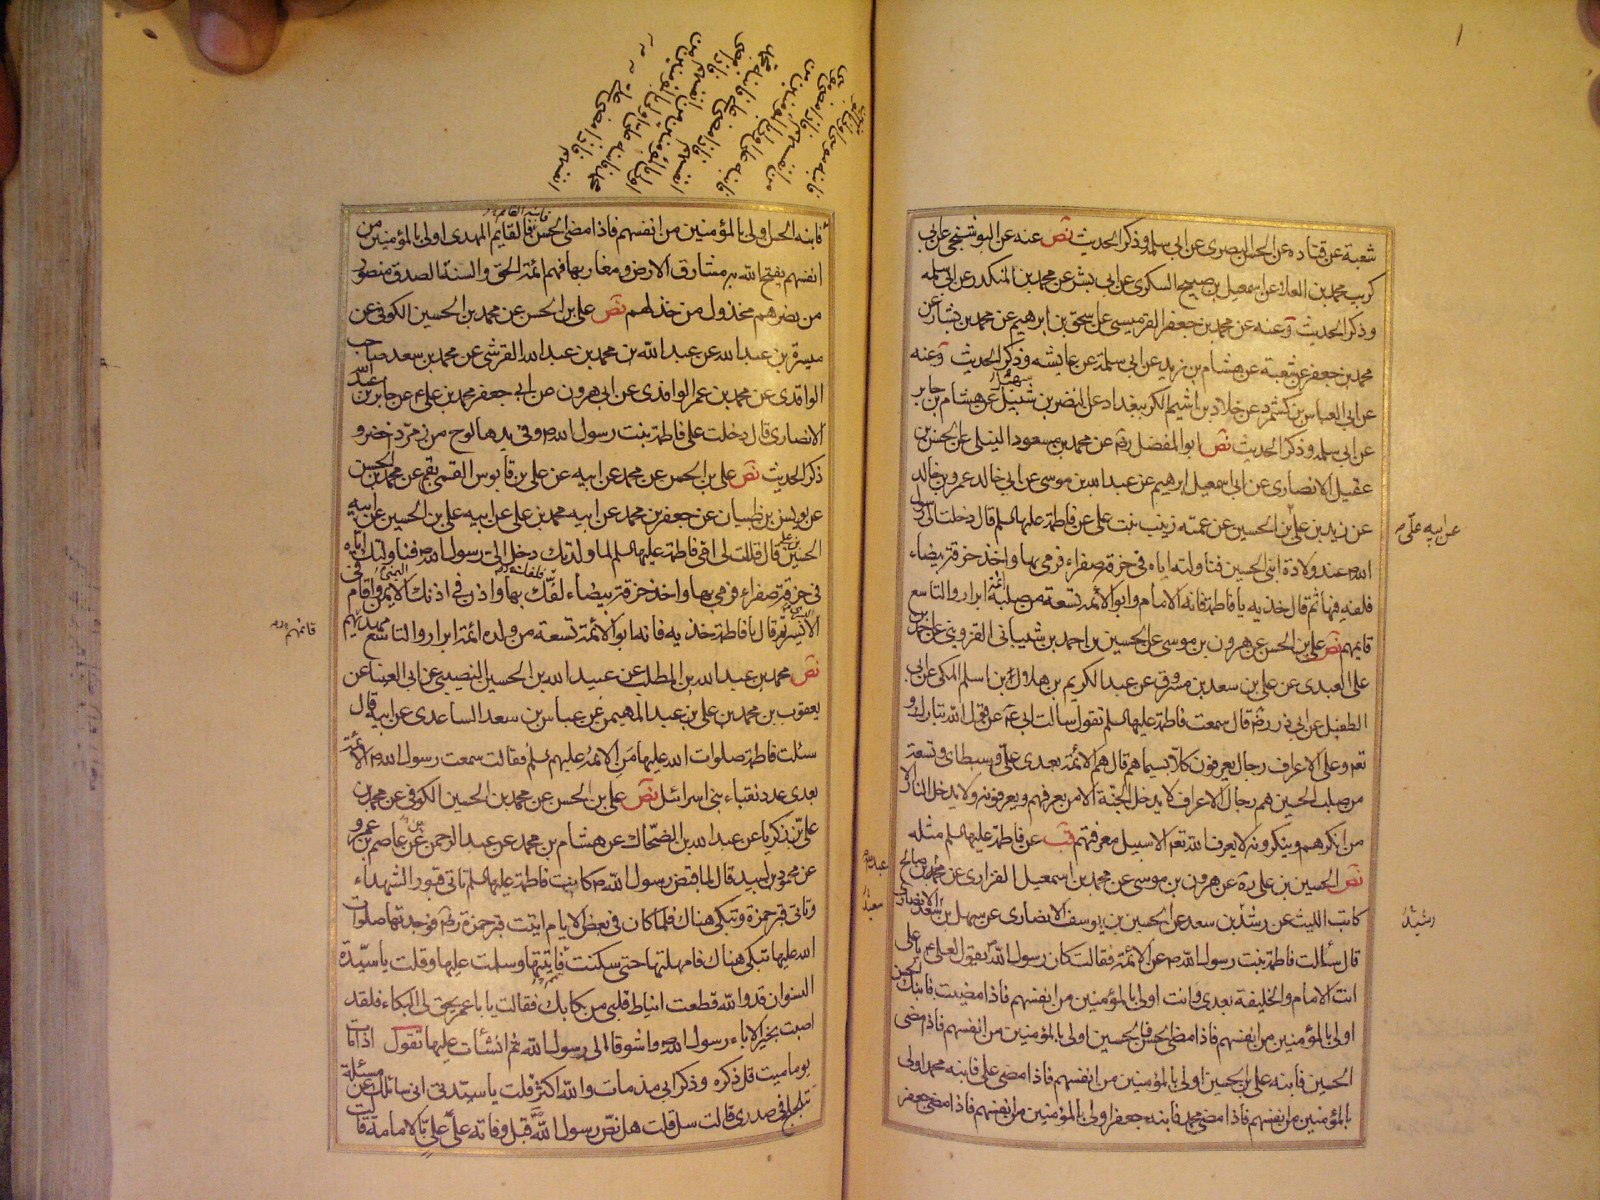 شعبة عن قتاده عن الحسن البصرى عن ابى سلمه وذكر الحديث نص عنه عن البوشنجى عن ابى
كريب محمد بن العلاء عن اسمعيل بن صبيح اليشكرى عن ابى بشر عن محمد بن المنكدر عن ابى سلمه
وذكر الحديث وعنه عن محمد بن جعفر القرميسى عن اسحق بن ابرهيم عن محمد بن بشار عن
محمد بن جعفر عن شعبة عن هشام بن زيد عن ابى سلمة عن عايشه وذكر الحديث وعنه
عن ابى العباس بن كشمرد عن خلاد بن اشيم ببغداد عن النضر بن شبيل عن هشام بن جابر
عن ابى سلمه وذكر الحديث نص ابو المفضل عن محمد بن مسعود النيلى عن الحسن بن
عقيل الانصارى عن ابى اسمعيل ابرهيم عن عبد الله بن موسى عن ابى خالد عمرو بن خالد
عن زيد بن على بن الحسين عن عمته زينب بنت على عن فاطمة عليها السلم قال دخلت الى رسول
عن ابيه على
الله ص عند ولادة ابنى الحسين فناولته اياه فى خرقة صفراء فرمى بها واخذ خرقة بيضاء
فلفه فيها ثم قال خذيه يا فاطمة فانه الامام وابو الائمة تسعة من صلبه ائمة ابرار والتاسع
قايمهم نص على بن الحسن عن هرون بن موسى عن الحسين بن احمد بن شيبان القزوينى عن احمد بن
على العبدى عن على بن سعد بن مسروق عن عبد الكريم بن هلال بن اسلم المكى عن ابى
الطفيل عن ابى ذر رض قال سمعت فاطمة عليها السلم تقول سالت ابى ع عن قول الله تبارك و
تعالى وعلى الاعراف رجال يعرفون كلا بسيماهم قال هم الائمة بعدى على وسبطاى وتسعة
من صلب الحسين هم رجال الاعراف لا يدخل الجنة الا من يعرفهم ويعرفونه ولا يدخل النار الا
من انكرهم وينكرونه لا يعرف الله تعالى الا بسبيل معرفتهم قب عن فاطمة عليها السلم مثله
نص الحسين بن على عن هرون بن موسى عن محمد بن اسمعيل الفزارى عن محمد بن صالح
كاتب الليث عن رشد بن سعد عن الحسين بن يوسف الانصارى عن سهل بن سعد الانصارى
رشيد
قال سألت فاطمة بنت رسول الله ص عن الائمة فقالت كان رسول الله ص يقول لعلى ع يا على
انت الامام والخليفة بعدى وانت اولى بالمؤمنين من انفسهم فاذا مضيت فابنك الحسن
اولى بالمؤمنين من انفسهم فاذا مضى الحسن فالحسين اولى بالمؤمنين من انفسهم فاذا مضى
الحسين فابنه على بن الحسين اولى بالمؤمنين من انفسهم فاذا مضى على فابنه محمد اولى
بالمؤمنين من انفسهم فاذا مضى محمد فابنه جعفر اولى بالمؤمنين من انفسهم فاذا مضى جعفر
فابنه الحسن اولى بالمؤمنين من انفسهم فاذا مضى الحسن فالقايم المهدى اولى بالمؤمنين من
انفسهم يفتح الله به مشارق الارض ومغاربها فهم ائمة الحق والسنة الصدق منصور
من نصرهم مخذول من خذلهم نص على بن الحسن عن محمد بن الحسين الكوفى عن
ميسرة بن عبد الله عن عبد الله بن محمد بن عبد الله القرشى عن محمد بن سعد صاحب
الواقدى عن محمد بن عمر الواقدى عن ابى هرون عن ابى جعفر محمد بن على ع عن جابر بن عبد الله
الانصارى قال دخلت على فاطمة بنت رسول الله ص وفى يدها لوح من زمرد خضر و
ذكر الحديث نص على بن الحسن عن محمد عن ابيه عن على بن قابوس القمى بقم عن محمد بن الحسن
عن يونس بن ظبيان عن جعفر بن محمد عن ابيه محمد بن على عن ابيه على بن الحسين عن ابيه
الحسين بن على قال قالت لى امى فاطمة عليها السلم لما ولدتك دخل الى رسول الله ص فناولتك اياه
فى خرقة صفراء فرمى بها واخذ خرقة بيضاء لفك بها واذن فى اذنك الايمن واقام فى
الايسر ثم قال يا فاطمة خذيه فانه ابو الائمة تسعة من ولده ائمة ابرار والتاسع مهديهم
قائمهم
نص محمد بن عبد الله بن المطلب عن عبيد الله بن الحسين النصيبى عن ابى العيناء عن
يعقوب بن محمد بن على بن عبد المهيمن عن عباس بن سعد الساعدى عن ابيه قال
سئلت فاطمة صلوات الله عليها من الائمة عليهم السلم فقالت سمعت رسول الله ص الائمة
بعدى عدد نقباء بنى اسرائيل نص على بن الحسن عن محمد بن الحسين الكوفى عن محمد بن
على بن زكريا عن عبد الله بن الضحاك عن هشام بن محمد عن عبد الرحمن عن عاصم بن عمرو
عن محمود بن لبيد قال لما قبض رسول الله ص كانت فاطمة عليها السلم تاتى قبور الشهداء
وتاتى قبر حمزة وتبكى هناك فلما كان فى بعض الايام اتيت قبر حمزة رض فوجدتها صلوات
الله عليها تبكى هناك فامهلتها حتى سكنت فاتيتها وسلمت عليها وقلت يا سيدة
النسوان قد والله قطعت انياط قلبى من بكائك فقالت يا با عمر يحق لى البكاء فلقد
اصبت بخير الاباء رسول الله ص واشوقاه الى رسول الله ثم انشأت عليها تقول اذا مات
يوما ميت قل ذكره وذكر ابى مذ مات والله اكثر قلت يا سيدتى انى سائلك عن مسئلة
تلجلج فى صدرى قالت سل قلت هل نص رسول الله ص قبل وفاته على على بالامامة قالت